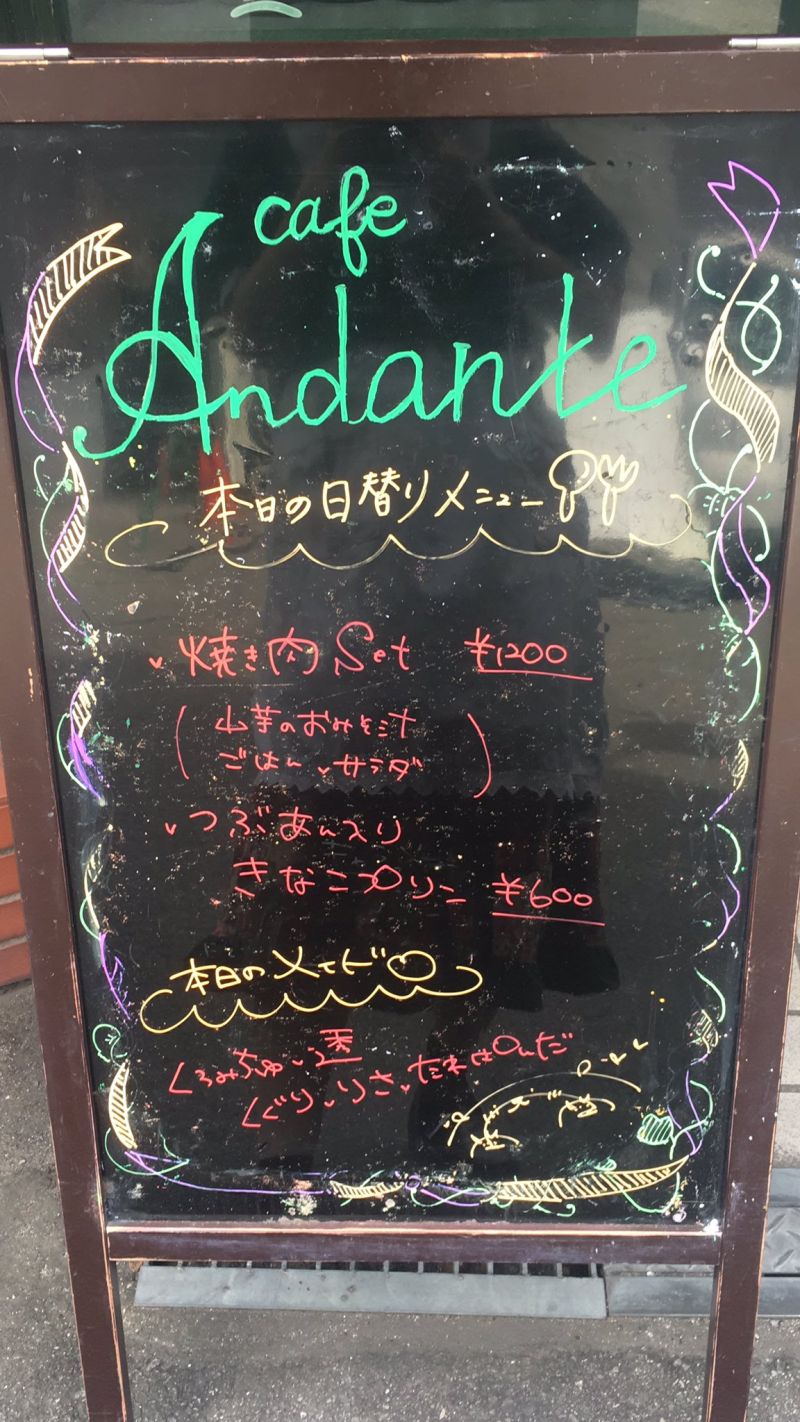 cafe
Andante
本日の日替りメニュー
焼き肉Set ¥1200
(山芋のおみそ汁
ごはん、サラダ)
つぶあん入り
きなこプリン ¥600
本日のメモド
くるみちゅいろ
くぐり、りさ、たれ